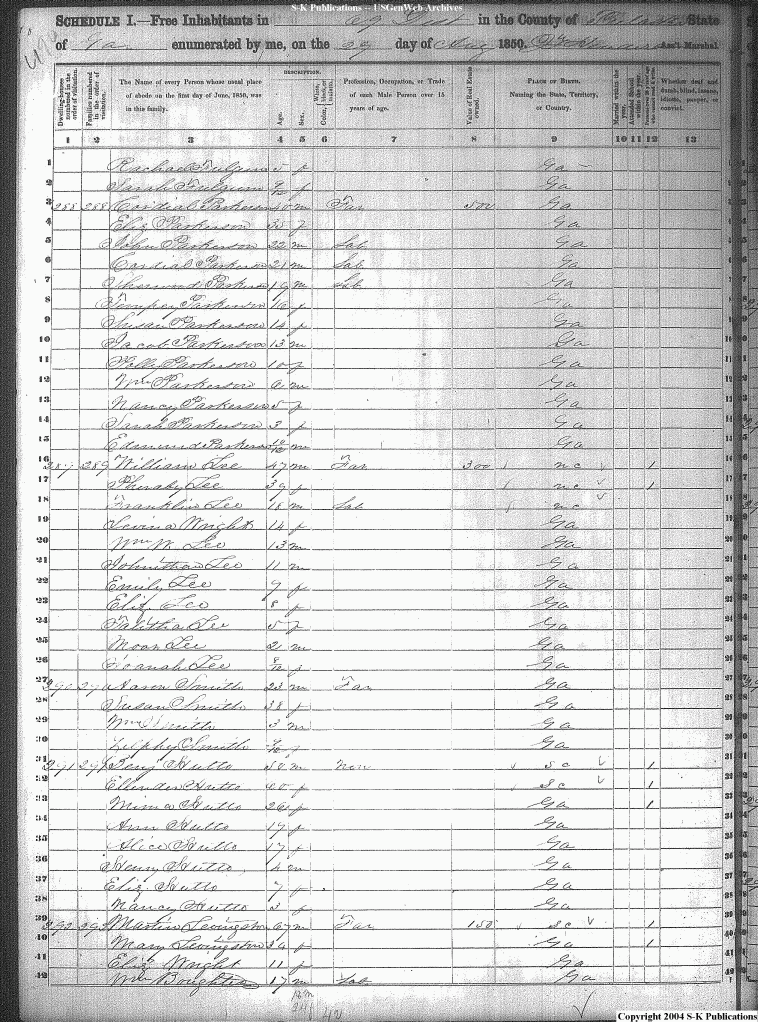 S-K Publications -- USGenWeb Archives
SCHEDULE I.—Free Inhabitants in 69 Dist in the County of State
of Ga enumerated by me, on the 29 day of Aug 1850. Ass't Marshal
Dwelling-houses numbered in the order of visitation.
Families numbered in the order of visitation.
The Name of every Person whose usual place of abode on the first day of June, 1850, was in this family.
DESCRIPTION.
Age.
Sex.
Color
Profession, Occupation, or Trade of each Male Person over 15 years of age.
Value of Real Estate owned.
PLACE OF BIRTH. Naming the State, Territory, or Country.
Married within the year.
Attended School within the year.
Whether deaf and dumb, blind, insane, idiotic, pauper, or convict.
1 2 3 4 5 6 7 8 9 10 11 12 13
1 Rachael Fulgum 5 f Ga
2 Sarah Fulgum f Ga
3 288 288 Cordial Parkerson 40 m Far 500 Ga
4 Eliz Parkerson 35 f Ga
5 John Parkerson 22 m Lab Ga
6 Cordial Parkerson 21 m Lab Ga
7 Parkerson 19 m Lab Ga
8 Tempey Parkerson 16 f Ga
9 Susan Parkerson 14 f Ga
10 Jacob Parkerson 13 m Ga
11 Polly Parkerson 10 f Ga
12 Wm Parkerson 6 m Ga
13 Nancy Parkerson 5 f Ga
14 Sarah Parkerson 3 f Ga
15 Edmund Parkerson m Ga
16 289 289 William Lee 47 m Far 300 NC 1
17 Lee 39 f NC 1
18 Franklin Lee 18 m Lab NC
19 Levina Wright 14 f Ga
20 Wm W. Lee 13 m Ga
21 Johnathan Lee 11 m Ga
22 Emily Lee 9 f Ga
23 Eliz Lee 8 f Ga
24 Talitha Lee 5 f Ga
25 Moon Lee 2 m Ga
26 Lee f Ga
27 290 290 Aaron Smitto 23 m Far Ga
28 Susan Smitto 38 f Ga
29 Wm Smitto 3 m Ga
30 Zilphy Smitto f Ga
31 291 291 Benj Hutto 50 m Non SC 1
32 Ellender Hutto 40 f SC 1
33 Hutto 26 f Ga 1
34 Ann Hutto 17 f Ga
35 Alice Hutto 17 f Ga
36 Henry Hutto 4 m Ga
37 Eliz. Hutto 7 f Ga
38 Nancy Hutto 3 f Ga
39 292 292 Martin Levingston 67 m Far 150 SC 1
40 Mary Levingston 34 f Ga 1
41 Eliz Wright 11 f Ga
42 Wm 17 m Lab Ga
Copyright 2004 S-K Publications